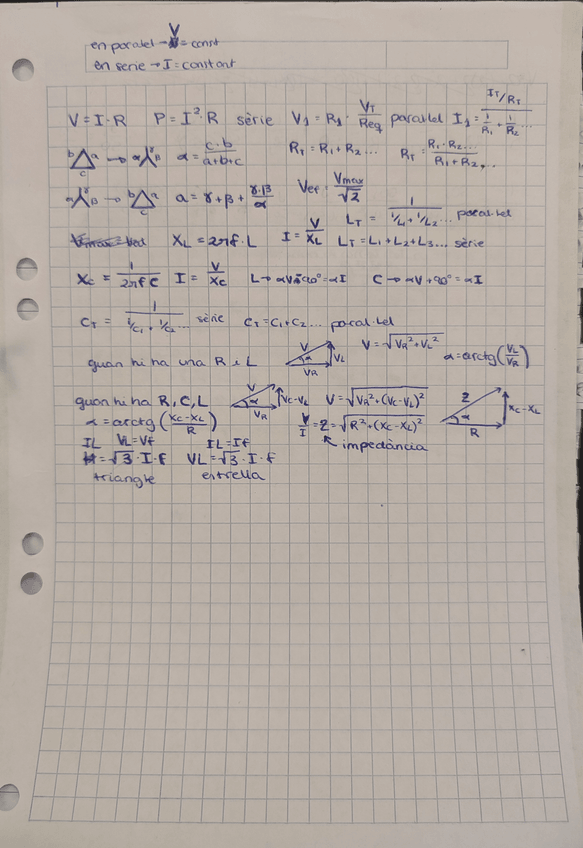 en paralel → V = const
en serie → I = constant
V = I · R P = I² · R sèrie V₁ = R₁ · V_T/Req paral·lel I₁ = (I_T/R_T)/(1/R₁ + 1/R₂...)
b a c → α γ β α = (c · b)/(a+b+c) R_T = R₁ + R₂... R_T = (R₁ · R₂...)/(R₁ + R₂...)
α γ β → b a c a = γ + β + (γ · β)/α Vef = Vmax/√2 L_T = 1/(1/L₁ + 1/L₂...) paral·lel
X_L = 2πf · L I = V/X_L L_T = L₁ + L₂ + L₃... sèrie
X_C = 1/(2πfC) I = V/X_C L → αV 90° = αI C → αV + 90° = αI
C_T = 1/(1/C₁ + 1/C₂...) sèrie C_T = C₁ + C₂... paral·lel
quan hi ha una R i L V α V_R V_L V = √(V_R² + V_L²) α = arctg(V_L/V_R)
quan hi ha R, C, L V α V_R V_C - V_L V = √(V_R² + (V_C - V_L)²) Z α R X_C - X_L
α = arctg((X_C - X_L)/R) V/I = Z = √(R² + (X_C - X_L)²)
impedància
IL VL = Vf IL = If
= √3 · I · f VL = √3 · I · f
triangle estrella